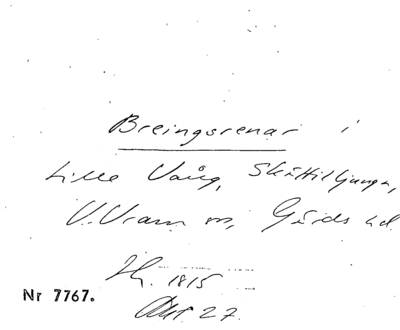 Breingsrenar i
Lille Vång, Skättiljunga,
V. Vram sn, Gärds hd.
1815
Nr 7767.
Akt. 27